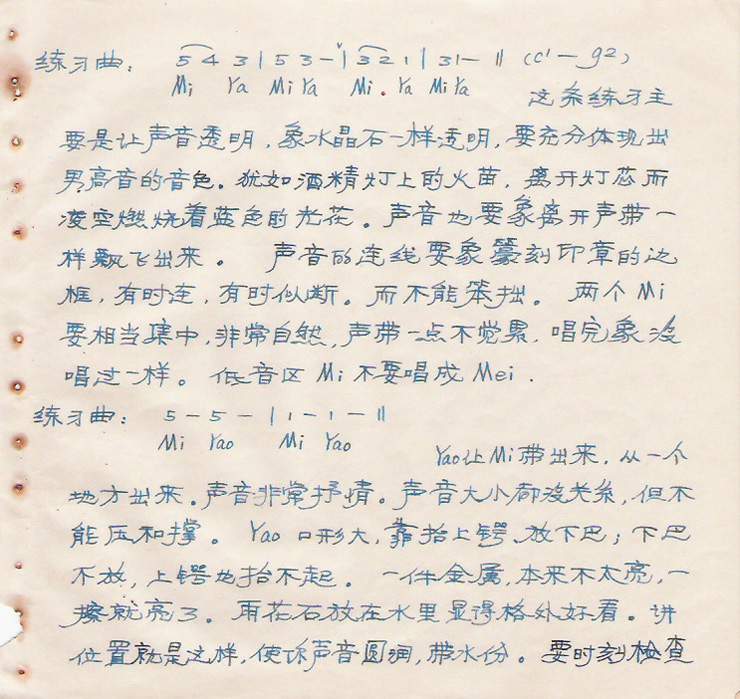 练习曲: 5 4 3 | 5 3 - ˅| 3 2 1 | 3 1 - ‖ (c¹ - g2)
Mi Ya Mi Ya Mi. Ya Mi Ya
这条练习主
要是让声音透明,象水晶石一样透明,要充分体现出
男高音的音色。犹如酒精灯上的火苗,离开灯芯而
凌空燃烧着蓝色的光花。声音也要象离开声带一
样飘飞出来。 声音的连线要象篆刻印章的边
框,有时连,有时似断。而不能笨拙。 两个Mi
要相当集中,非常自然,声带一点不觉累,唱完象没
唱过一样。 低音区Mi不要唱成Mei.
练习曲: 5 - 5 - | 1 - 1 - ‖
Mi Yao Mi Yao
Yao让Mi带出来,从一个
地方出来。声音非常抒情。声音大小都没关系,但不
能压和撑。 Yao 口形大,靠抬上锷、放下巴;下巴
不放,上锷也抬不起。 一件金属,本来不太亮,一
擦就亮了。雨花石放在水里显得格外好看。讲
位置就是这样,使你声音圆润,带水份。要时刻检查